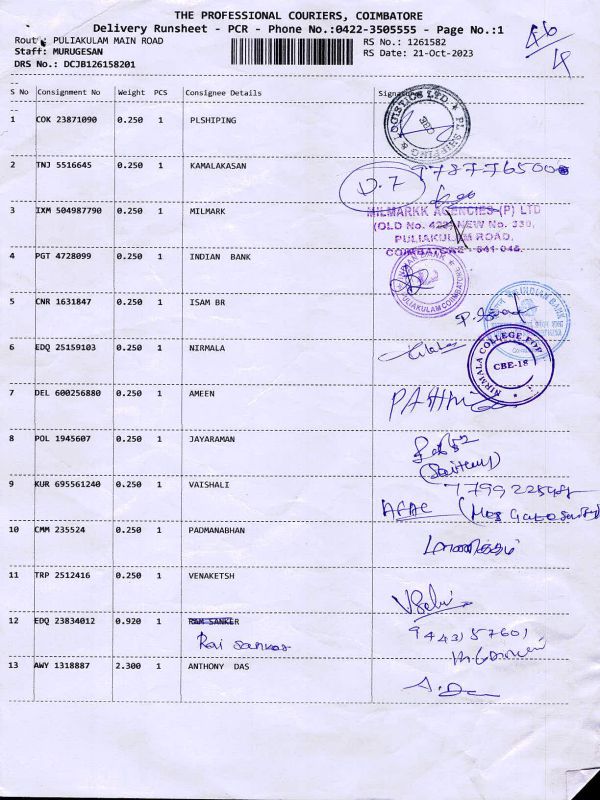 THE PROFESSIONAL COURIERS, COIMBATORE
Delivery Runsheet - PCR - Phone No.:0422-3505555 - Page No.:1
Rout : PULIAKULAM MAIN ROAD
RS No.: 1261582
Staff: MURUGESAN
RS Date: 21-Oct-2023
DRS No.: DCJB126158201
46/4
S No Consignment No Weight PCS Consignee Details Signature
1 COK 23871090 0.250 1 PLSHIPING
PL SHIPPING & LOGISTICS LTD
2 TNJ 5516645 0.250 1 KAMALAKASAN
D.7
3 IXM 504987790 0.250 1 MILMARK
MILMARKK AGENCIES (P) LTD
(OLD No. 422) NEW No. 330,
PULIAKULAM ROAD,
COIMBATORE - 641 045.
4 PGT 4728099 0.250 1 INDIAN BANK
PULIAKULAM COIMBATORE
5 CNR 1631847 0.250 1 ISAM BR
INDIAN BANK
6 EDQ 25159103 0.250 1 NIRMALA
NIRMALA COLLEGE FOR
CBE-18
7 DEL 600256880 0.250 1 AMEEN
8 POL 1945607 0.250 1 JAYARAMAN
9 KUR 695561240 0.250 1 VAISHALI
10 CMM 235524 0.250 1 PADMANABHAN
11 TRP 2512416 0.250 1 VENAKETSH
12 EDQ 23834012 0.920 1 RAM SANKER
Rai Sankar
9443157601
13 AWY 1318887 2.300 1 ANTHONY DAS